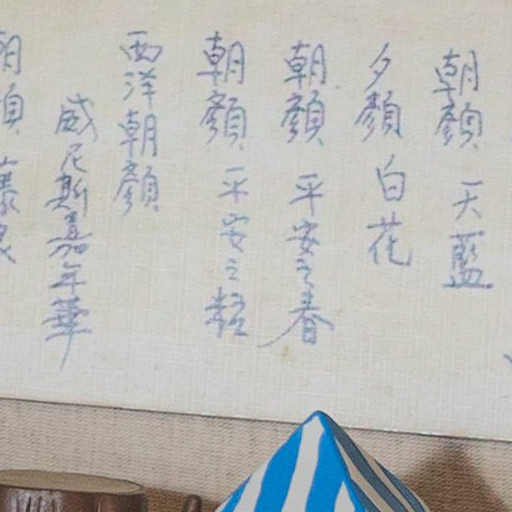 朝顏 天藍
夕顏 白花
朝顏 平安之春
朝顏 平安之粧
西洋朝顏
威尼斯嘉年華
朝顏